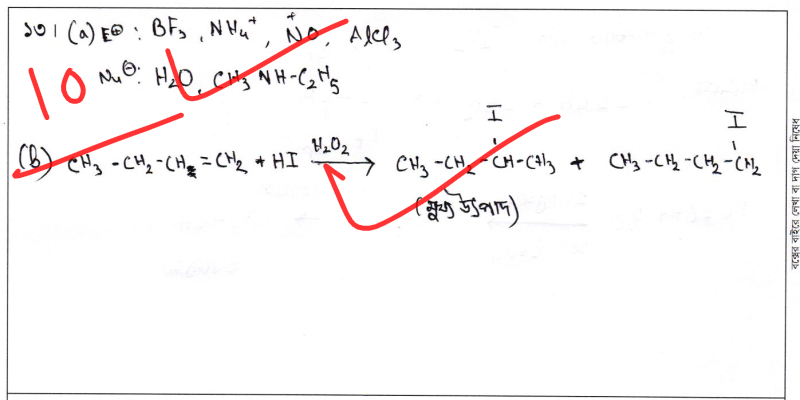 ১০১ (a) E⊕ : BF₃ , NH₄⁺ , N⁺O, AlCl₃
10 Nu⊖: H₂O, CH₃ NH-C₂H₅
I I
(b) CH₃ -CH₂ -CH = CH₂ + HI H₂O₂ → CH₃ -CH₂ -CH-CH₃ + CH₃-CH₂-CH₂-CH₂
(মুখ্য উৎপাদ)
বক্সের বাইরে লেখা বা দাগ দেয়া নিষেধ